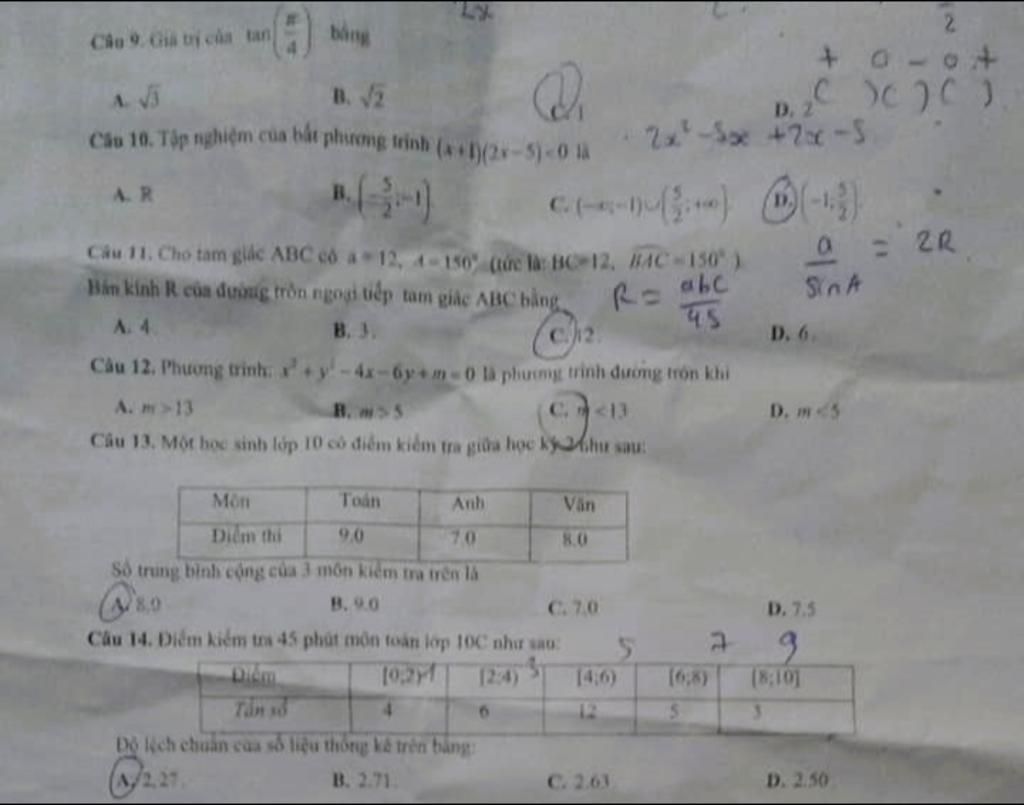 2x
2
Câu 9. Giá trị của tan(π/4) bằng
+ 0 - 0 +
( ) ( ) ( )
A. √3 B. √2 C. 1 D. 2
Câu 10. Tập nghiệm của bất phương trình (x+1)(2x-5)<0 là
2x² -5x +2x -5
A. R B. (-5/2;-1) C. (-∞;-1)∪(5/2;+∞) D. (-1;5/2)
Câu 11. Cho tam giác ABC có a = 12, A = 150° (tức là: BC=12, BAC = 150° )
a/sinA = 2R
Bán kính R của đường tròn ngoại tiếp tam giác ABC bằng
R = abc/4S
A. 4. B. 3. C. 12. D. 6.
Câu 12. Phương trình: x² + y² - 4x - 6y + m = 0 là phương trình đường tròn khi
A. m > 13 B. m > 5 C. m < 13 D. m < 5
Câu 13. Một học sinh lớp 10 có điểm kiểm tra giữa học kỳ 2 như sau:
Môn Toán Anh Văn
Điểm thi 9.0 7.0 8.0
Số trung bình cộng của 3 môn kiểm tra trên là
A. 8.0 B. 9.0 C. 7.0 D. 7.5
Câu 14. Điểm kiểm tra 45 phút môn toán lớp 10C như sau:
5 7 9
Điểm [0;2) 1 [2;4) 3 [4;6) [6;8) [8;10]
Tần số 4 6 12 5 3
Độ lệch chuẩn của số liệu thống kê trên bằng:
A. 2,27. B. 2.71. C. 2.63. D. 2.50.